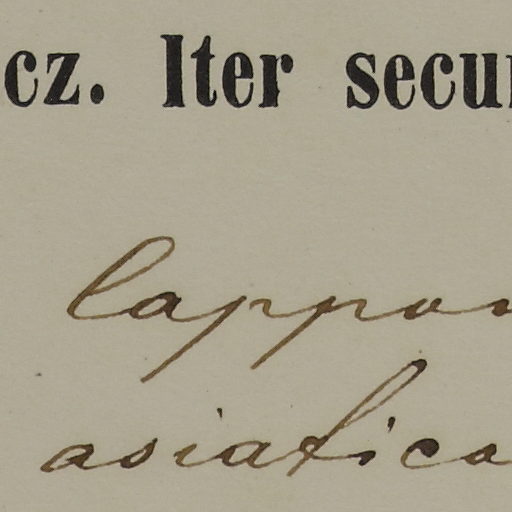 cz. Iter secu
lappon
asiatica